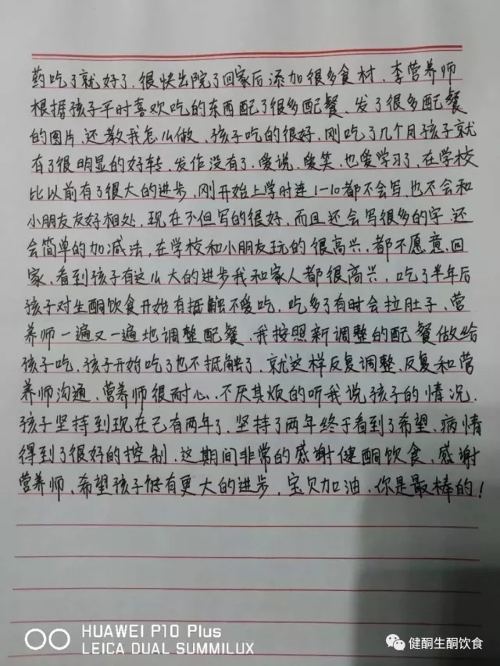 药吃了就好了、很快出院了回家后添加很多食材、李营养师
根据孩子平时喜欢吃的东西配了很多配餐、发了很多配餐
的图片、还教我怎么做、孩子吃的很好、刚吃了几个月孩子就
有了很明显的好转、发作没有了、爱说、爱笑、也爱学习了、在学校
比以前有了很大的进步、刚开始上学时连1-10都不会写、也不会和
小朋友友好相处、现在不但写的很好、而且还会写很多的字、还
会简单的加减法、在学校和小朋友玩的很高兴、都不愿意回
家、看到孩子有这么大的进步我和家人都很高兴、吃了半年后
孩子对生酮饮食开始有抵触不爱吃、吃多了有时会拉肚子、营
养师一遍又一遍地调整配餐、我按照新调整的配餐做给
孩子吃、孩子开始吃了也不抵触了、就这样反复调整、反复和营
养师沟通、营养师很耐心、不厌其烦的听我说孩子的情况、
孩子坚持到现在已有两年了、坚持了两年终于看到了希望、病情
得到了很好的控制、这期间非常的感谢健酮饮食、感谢
营养师、希望孩子能有更大的进步、宝贝加油、你是最棒的!
HUAWEI P10 Plus
LEICA DUAL SUMMILUX
健酮生酮饮食